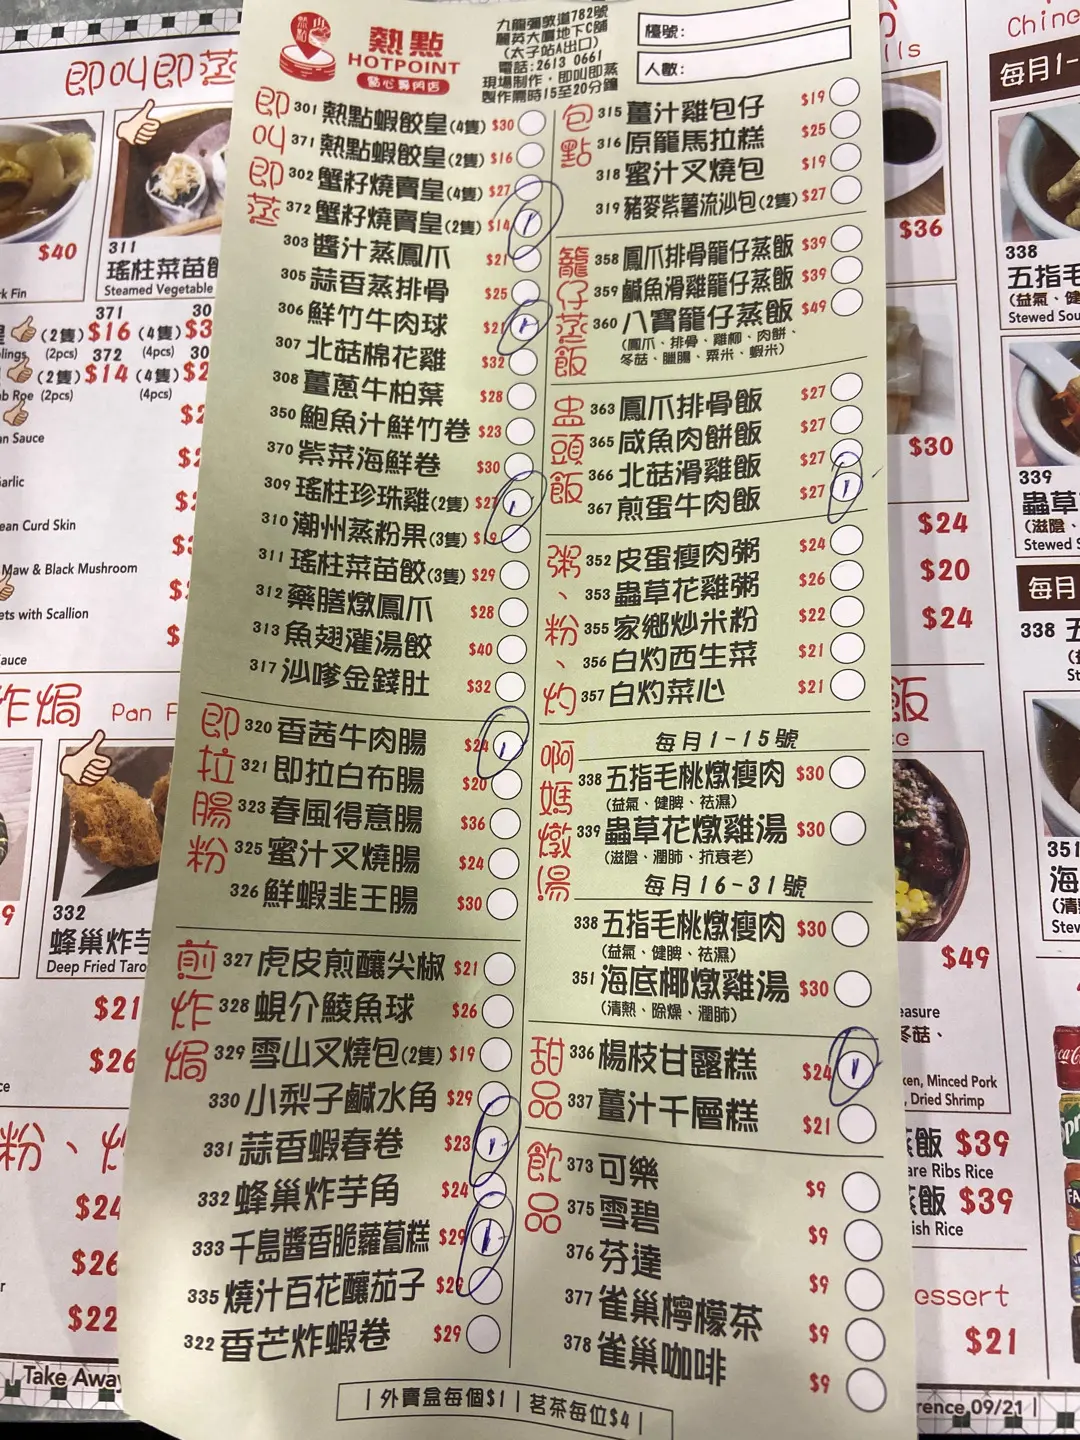 熱點
HOTPOINT
點心專門店
九龍彌敦道782號
麗英大廈地下C舖
(太子站A出口)
電話:2613 0661
現場製作,即叫即蒸
製作需時15至20分鐘
檯號:
人數:
即叫即蒸
301 熱點蝦餃皇(4隻) $30
371 熱點蝦餃皇(2隻) $16
302 蟹籽燒賣皇(4隻) $27
372 蟹籽燒賣皇(2隻) $14 1
303 醬汁蒸鳳爪 $21
305 蒜香蒸排骨 $25
306 鮮竹牛肉球 $21 1
307 北菇棉花雞 $32
308 薑蔥牛柏葉 $28
350 鮑魚汁鮮竹卷 $23
370 紫菜海鮮卷 $30
309 瑤柱珍珠雞(2隻) $27 1
310 潮州蒸粉果(3隻) $19
311 瑤柱菜苗餃(3隻) $29
312 藥膳燉鳳爪 $28
313 魚翅灌湯餃 $40
317 沙嗲金錢肚 $32
即拉腸粉
320 香茜牛肉腸 $24 1
321 即拉白布腸 $20
323 春風得意腸 $36
325 蜜汁叉燒腸 $24
326 鮮蝦韭王腸 $30
煎炸焗
327 虎皮煎釀尖椒 $21
328 蜆介鯪魚球 $26
329 雪山叉燒包(2隻) $19
330 小梨子鹹水角 $29
331 蒜香蝦春卷 $23 1
332 蜂巢炸芋角 $24
333 千島醬香脆蘿蔔糕 $29 1
335 燒汁百花釀茄子 $29
322 香芒炸蝦卷 $29
包點
315 薑汁雞包仔 $19
316 原籠馬拉糕 $25
318 蜜汁叉燒包 $19
319 豬麥紫薯流沙包(2隻) $27
籠仔蒸飯
358 鳳爪排骨籠仔蒸飯 $39
359 鹹魚滑雞籠仔蒸飯 $39
360 八寶籠仔蒸飯 $49
(鳳爪、排骨、雞柳、肉餅、
冬菇、臘腸、粟米、蝦米)
盅頭飯
363 鳳爪排骨飯 $27
365 咸魚肉餅飯 $27
366 北菇滑雞飯 $27
367 煎蛋牛肉飯 $27 1
粥、粉、灼
352 皮蛋瘦肉粥 $24
353 蟲草花雞粥 $26
355 家鄉炒米粉 $22
356 白灼西生菜 $21
357 白灼菜心 $21
啊媽燉湯
每月1-15號
338 五指毛桃燉瘦肉 $30
(益氣、健脾、祛濕)
339 蟲草花燉雞湯 $30
(滋陰、潤肺、抗衰老)
每月16-31號
338 五指毛桃燉瘦肉 $30
(益氣、健脾、祛濕)
351 海底椰燉雞湯 $30
(清熱、除燥、潤肺)
甜品
336 楊枝甘露糕 $24 1
337 薑汁千層糕 $21
飲品
373 可樂 $9
375 雪碧 $9
376 芬達 $9
377 雀巢檸檬茶 $9
378 雀巢咖啡 $9
| 外賣盒每個$1 | 茗茶每位$4 |
即叫即蒸
$40
k Fin
311
瑤柱菜苗餃
Steamed Vegetable
371
(2隻) $16 (4隻) $3
lings (2pcs) (4pcs)
372
(2隻) $14 (4隻) $2
b Roe (2pcs) (4pcs)
an Sauce
arlic
ean Curd Skin
Maw & Black Mushroom
ets with Scallion
auce
炸焗 Pan F
332
蜂巢炸芋
Deep Fried Taro
$21
$26
粉、灼
$24
$26
$22
Take Away
lls
$36
$30
$24
$20
$24
飯
$49
easure
冬菇、
ken, Minced Pork
, Dried Shrimp
蒸飯 $39
are Ribs Rice
蒸飯 $39
ish Rice
essert
$21
rence 09/21 |
Chine
每月1-
338
五指毛
(益氣、健
Stewed Sou
339
蟲草
(滋陰、
Stewed S
每月
338 五
351
海
(清熱
Stew